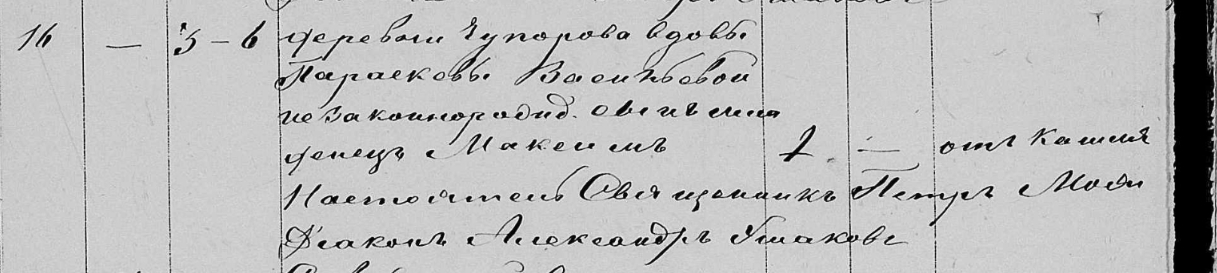 16 — 3 – 6 деревни Чупорова вдовы
Параскевы Васильевой
незаконнорожд. сынъ мла
денецъ Максимъ 1 — отъ кашля
Настоятель Священникъ Петръ
Діаконъ Александръ Ушаковъ